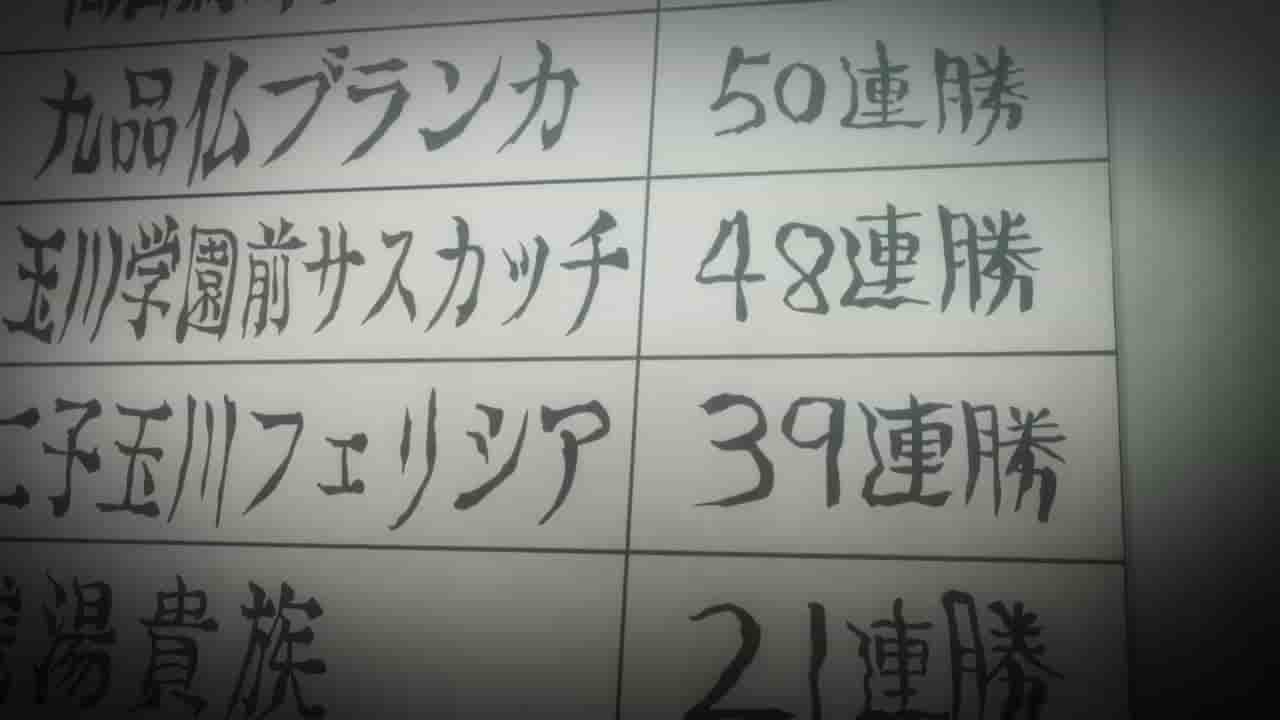 九品仏ブランカ 50連勝
玉川学園前サスカッチ 48連勝
二子玉川フェリシア 39連勝
湯貴族 21連勝